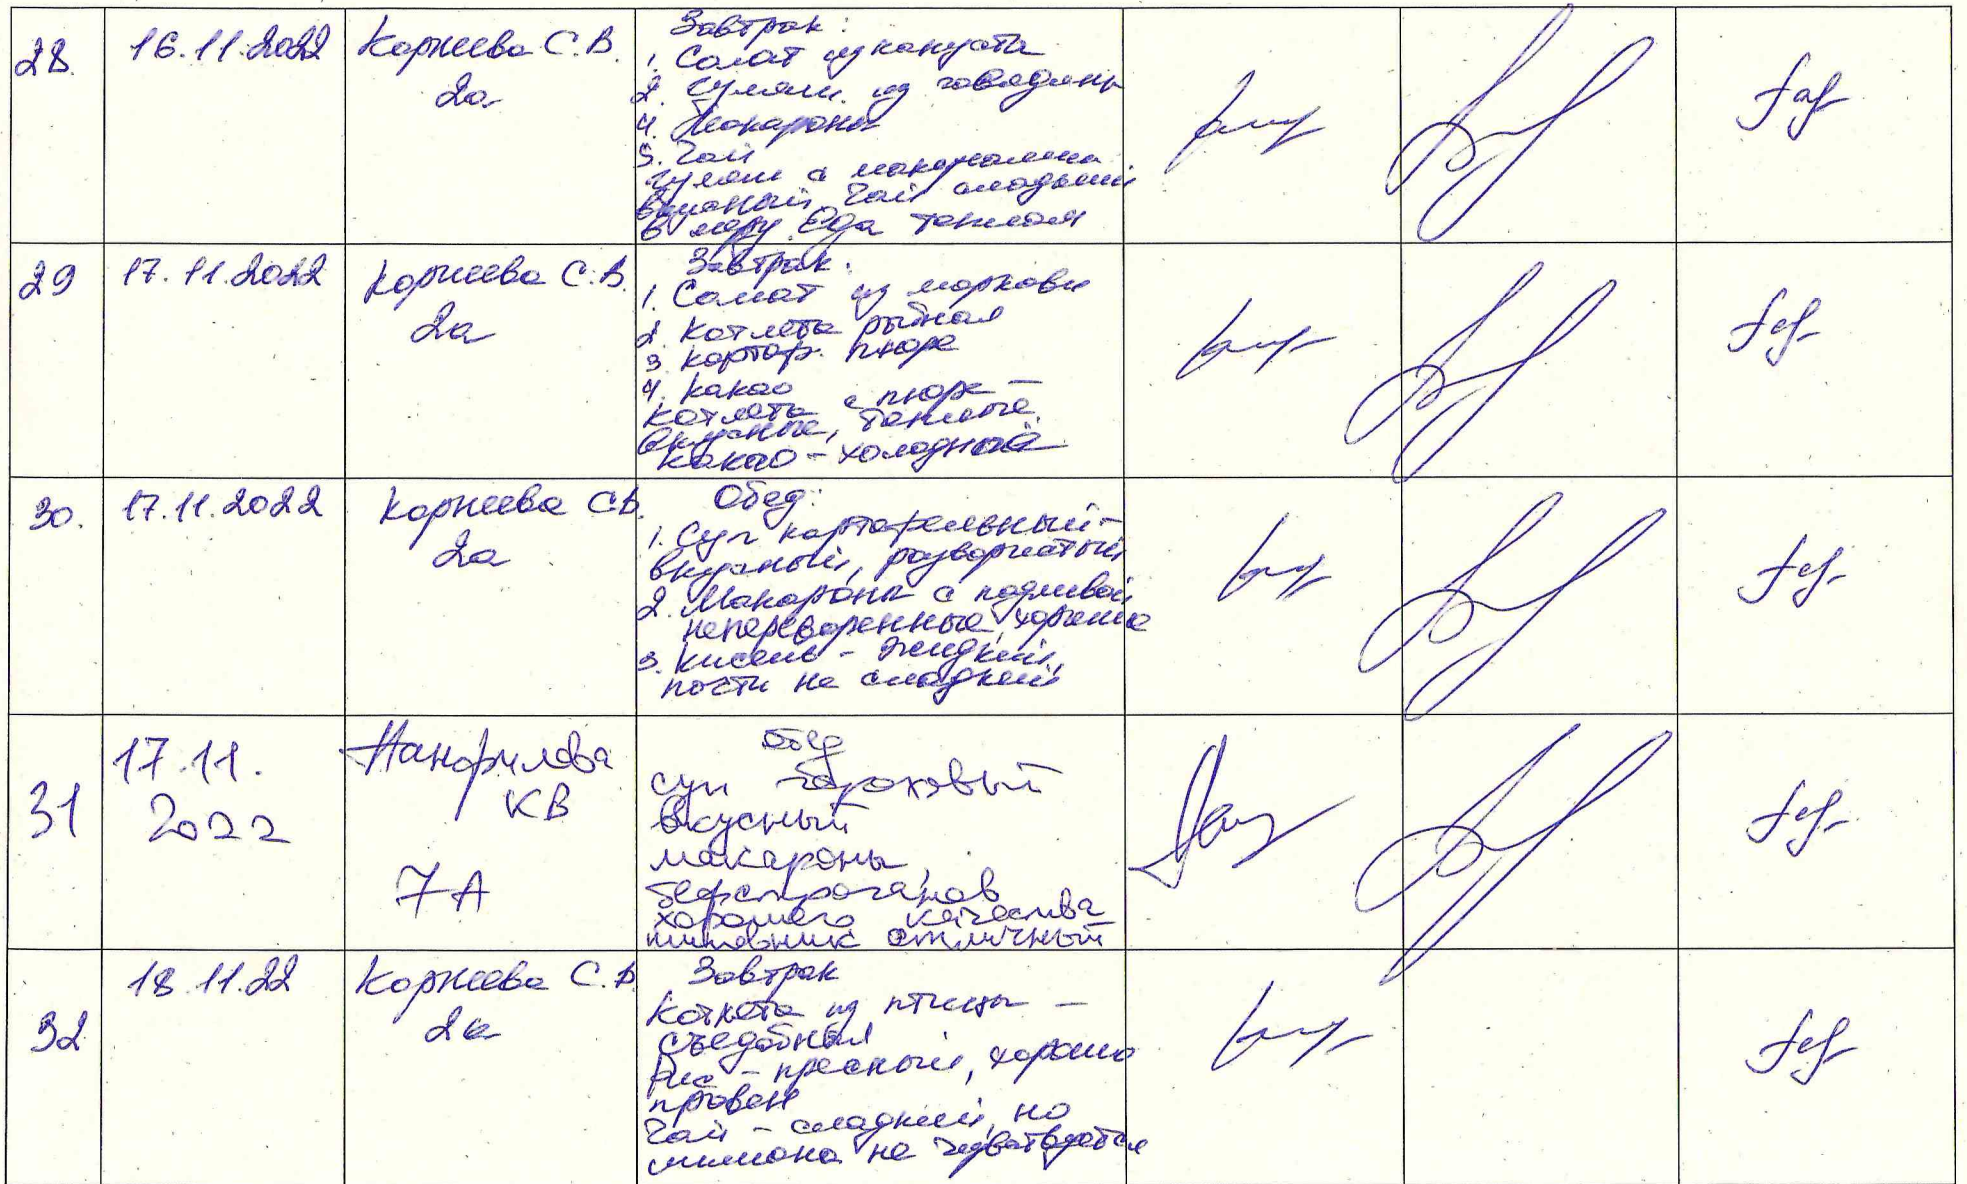 28. 16.11.2022 Корнеева С.В.
2а
Завтрак:
1. Салат из капуста
2. Гуляш из говядины
4. Макароны
5. Чай
гуляш с макаронами
вкусный, чай сладкий
в меру. Еда теплая
29 17.11.2022 Корнеева С.В.
2а
Завтрак:
1. Салат из моркови
2. Котлета рыбная
3 картоф. пюре
4. Какао
Котлета с пюре –
вкусные, теплые.
Какао – холодный
30. 17.11.2022 Корнеева СВ.
2а
Обед:
1. Суп картофельный –
вкусный, разварчатый
2. Макароны с подливой
непереваренные, хорошие
3. Кисель – жидкий,
почти не сладкий
31 17.11.
2022
Панфилова
КВ
7А
Обед
суп гороховый
вкусный
макароны,
бефстроганов
хорошего качества
шиповник отличный
32 18.11.22 Корнеева С.В.
2а
Завтрак
Котлета из птицы –
съедобная
Рис – пресный, хорошо
проварен
Чай – сладкий, но
лимона не чувствуется